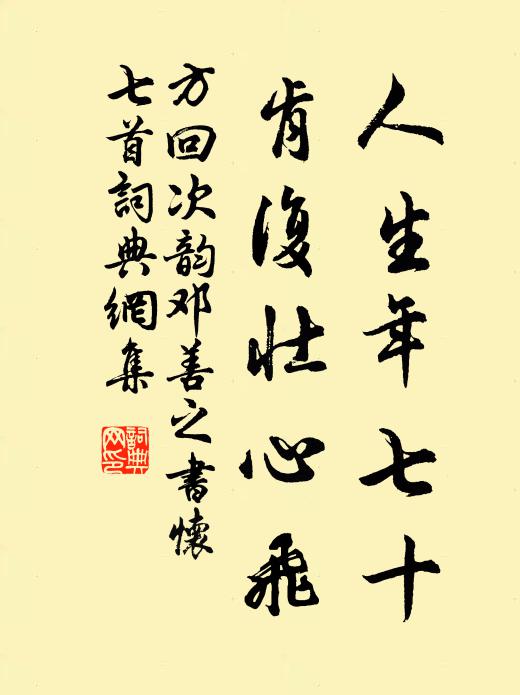 人生年七十
肯復壯心飛
方回次韵邓善之書懷
七首詞典網集
詞典
网印